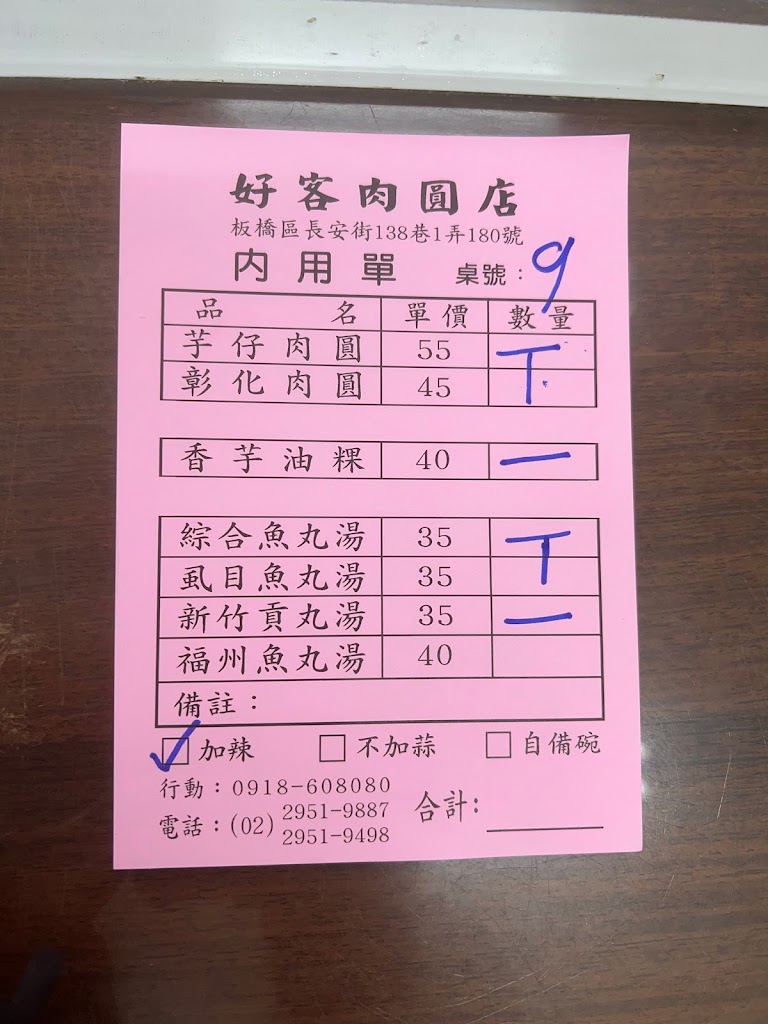 好客肉圓店
板橋區長安街138巷1弄180號
內用單 桌號：9
品名 單價 數量
芋仔肉圓 55 丅
彰化肉圓 45
香芋油粿 40 一
綜合魚丸湯 35 丅
虱目魚丸湯 35
新竹貢丸湯 35 一
福州魚丸湯 40
備註：
☑加辣 □不加蒜 □自備碗
行動：0918-608080
電話：(02) 2951-9887
2951-9498
合計：